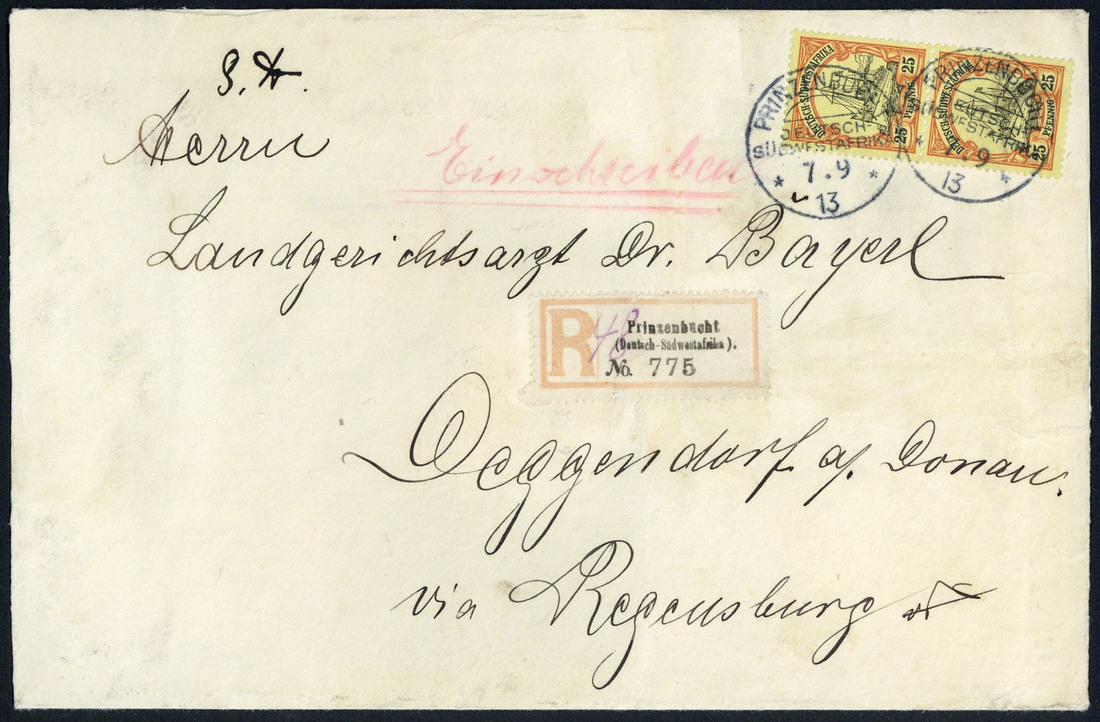 Herrn
Einschreiben
Landgerichtsarzt Dr. Bayerl
Deggendorf a/ Donau.
via Regensburg
R 48
Prinzenbucht
(Deutsch-Südwestafrika).
No. 775
DEUTSCH-SÜDWESTAFRIKA
25 PFENNIG 25
DEUTSCH-SÜDWESTAFRIKA
25 PFENNIG 25
PRINZENBUCHT
DEUTSCH-
SÜDWESTAFRIKA
* 7.9 *
13
PRINZENBUCHT
DEUTSCH-
SÜDWESTAFRIKA
* 7.9 *
13